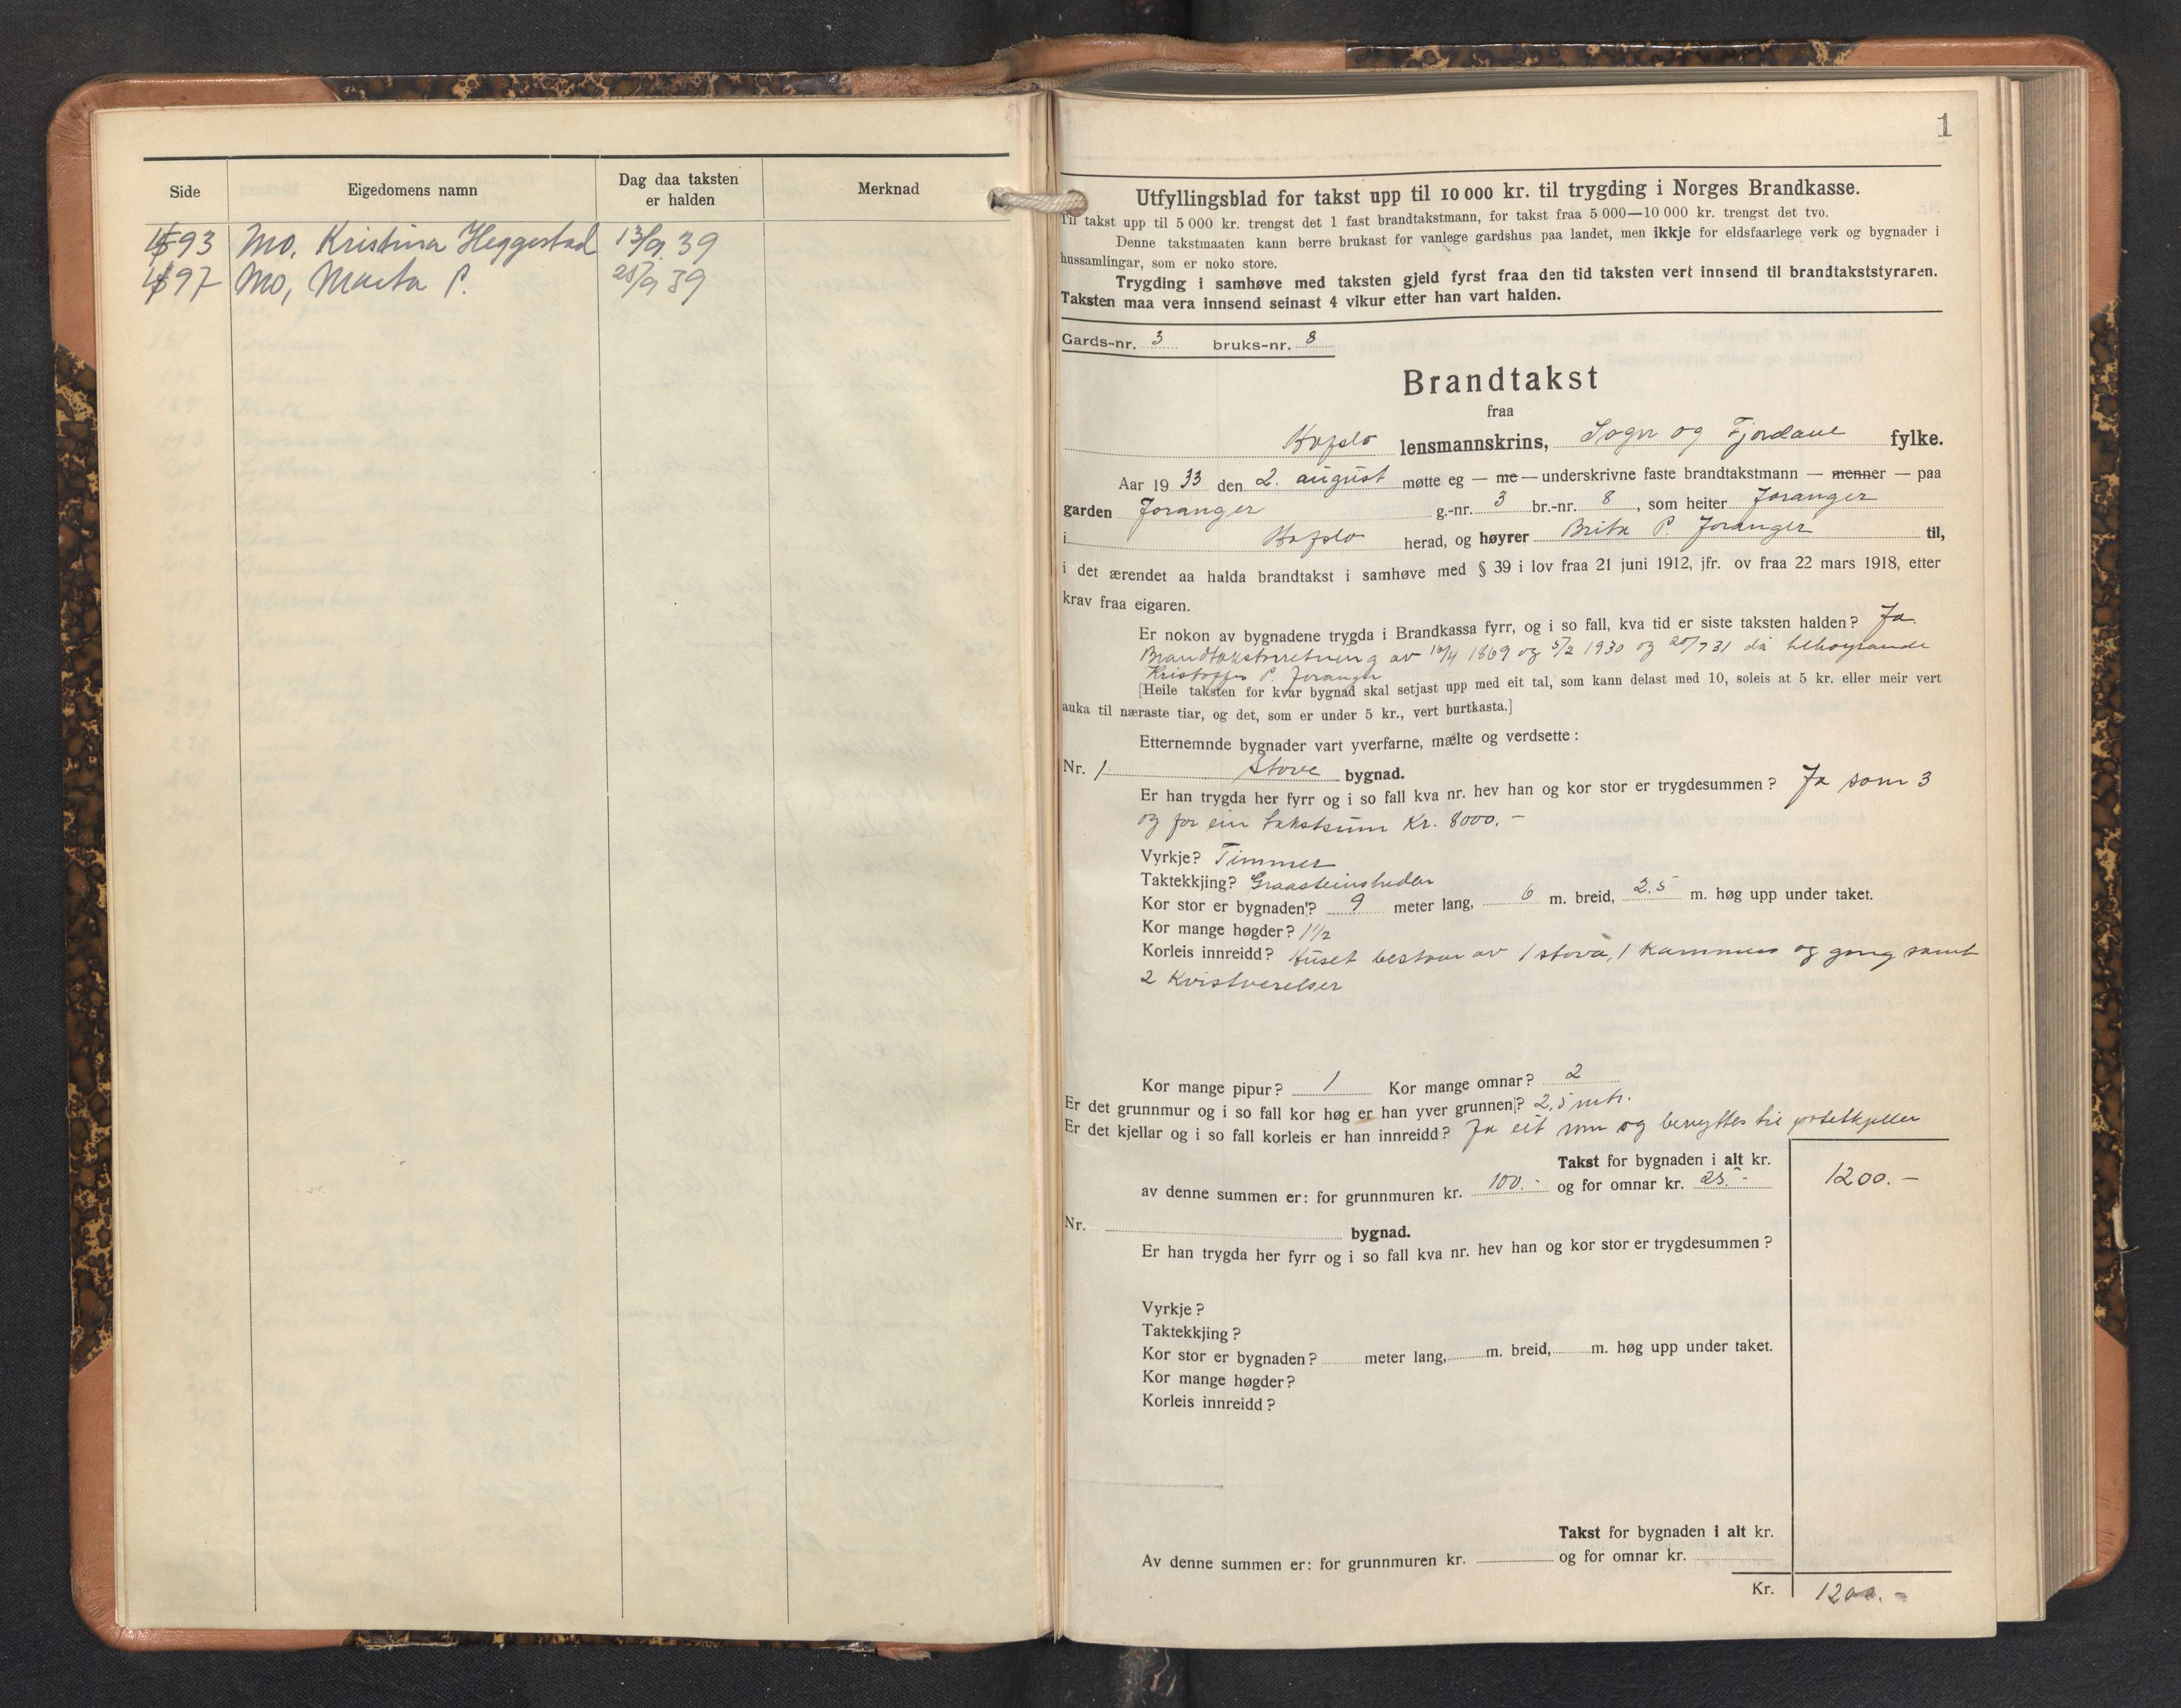 Side Eigedomens namn Dag daa taksten er halden Merknad
93 Mo, Kristina Heggestad 13/9 39
97 Mo, Marta P. 25/9 39
1
Utfyllingsblad for takst upp til 10 000 kr. til trygding i Norges Brandkasse.
Til takst upp til 5 000 kr. trengst det 1 fast brandtakstmann, for takst fraa 5 000—10 000 kr. trengst det tvo.
Denne takstmaaten kann berre brukast for vanlege gardshus paa landet, men ikkje for eldsfaarlege verk og bygnader i
hussamlingar, som er noko store.
Trygding i samhøve med taksten gjeld fyrst fraa den tid taksten vert innsend til brandtakststyraren.
Taksten maa vera innsend seinast 4 vikur etter han vart halden.
Gards-nr. 3 bruks-nr. 8
Brandtakst
fraa
Hafslo lensmannskrins, Sogn og Fjordane fylke.
Aar 1933 den 2. august møtte eg — me — underskrivne faste brandtakstmann — menner — paa
garden Joranger g.-nr. 3 br.-nr. 8, som heiter Joranger
i Hafslo herad, og høyrer Brita P. Joranger til,
i det ærendet aa halda brandtakst i samhøve med § 39 i lov fraa 21 juni 1912, jfr. ov fraa 22 mars 1918, etter
krav fraa eigaren.
Er nokon av bygnadene trygda i Brandkassa fyrr, og i so fall, kva tid er siste taksten halden? Ja.
Brandtakstforretning av 10/4 1869 og 5/2 1930 og 20/7 31 då tilhøyrande
Kristoffer P. Joranger
[Heile taksten for kvar bygnad skal setjast upp med eit tal, som kann delast med 10, soleis at 5 kr. eller meir vert
auka til næraste tiar, og det, som er under 5 kr., vert burtkasta.]
Etternemnde bygnader vart yverfarne, mælte og verdsette:
Nr. 1. Stove bygnad.
Er han trygda her fyrr og i so fall kva nr. hev han og kor stor er trygdesummen? Ja som 3
og for ein takstsum Kr. 8000.-
Vyrkje? Timmer
Taktekkjing? Graasteinsheder
Kor stor er bygnaden? 9 meter lang, 6 m. breid, 2.5 m. høg upp under taket.
Kor mange høgder? 1 1/2
Korleis innreidd? Huset bestaar av 1 stova, 1 kammers og gang samt
2 Kvistverelser
Kor mange pipur? 1 Kor mange omnar? 2
Er det grunnmur og i so fall kor høg er han yver grunnen? 2,5 mtr.
Er det kjellar og i so fall korleis er han innreidd? Ja eit rum og benyttes til potetkjeller
Takst for bygnaden i alt kr. 1200.-
av denne summen er: for grunnmuren kr. 100.- og for omnar kr. 25.-
Nr. bygnad.
Er han trygda her fyrr og i so fall kva nr. hev han og kor stor er trygdesummen?
Vyrkje?
Taktekkjing?
Kor stor er bygnaden? meter lang, m. breid, m. høg upp under taket.
Kor mange høgder?
Korleis innreidd?
Takst for bygnaden i alt kr.
Av denne summen er: for grunnmuren kr. og for omnar kr.
Kr. 1200.-